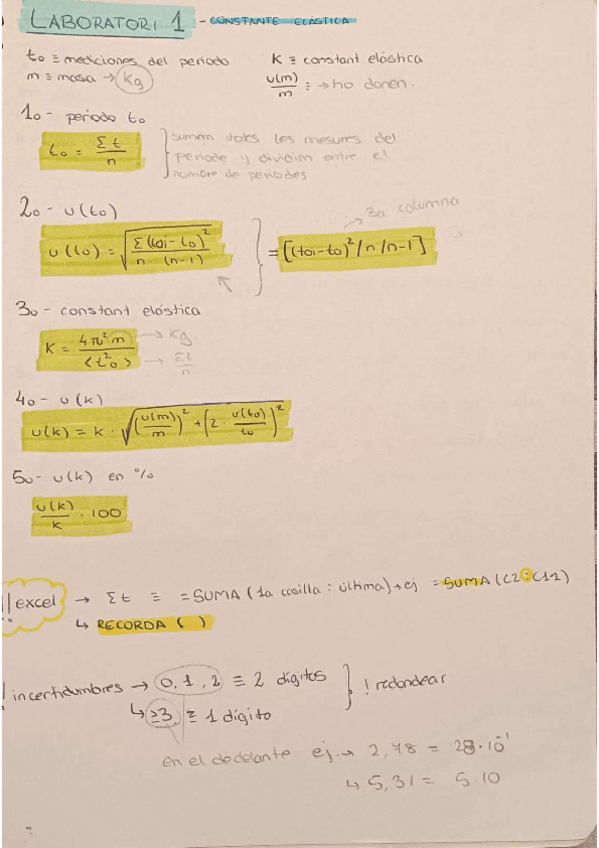 LABORATORI 1 - CONSTANTE ELÁSTICA
to ≡ mediciones del periodo K ≡ constant elástica
m ≡ masa → kg u(m)/m ≡ → ho donen.
1o - periodo to
to = Σt/n } suman totes les mesures del
periode y dividim entre el
nombre de periodes
2o - u(to)
→ 3a columna
u(to) = √(Σ(toi-to)²/n·(n-1)) } = [(toi-to)²/n/n-1]
3o - constant elástica
K = 4π²m/<t²o> → kg
→ Σt/n
4o - u(k)
u(k) = k · √((u(m)/m)² + (2 · u(to)/to)²)
5o - u(k) en %
u(k)/k · 100
!! excel → Σt ≡ =SUMA (1a casilla : última) → ej =SUMA(C2:C12)
↳ RECORDA ( )
! incertidumbres → 0, 1, 2 ≡ 2 dígitos } ! redondear
↳ ≥3, ≡ 1 dígito
en el de delante ej. → 2,78 = 28·10⁻¹
↳ 5,31 = 5·10